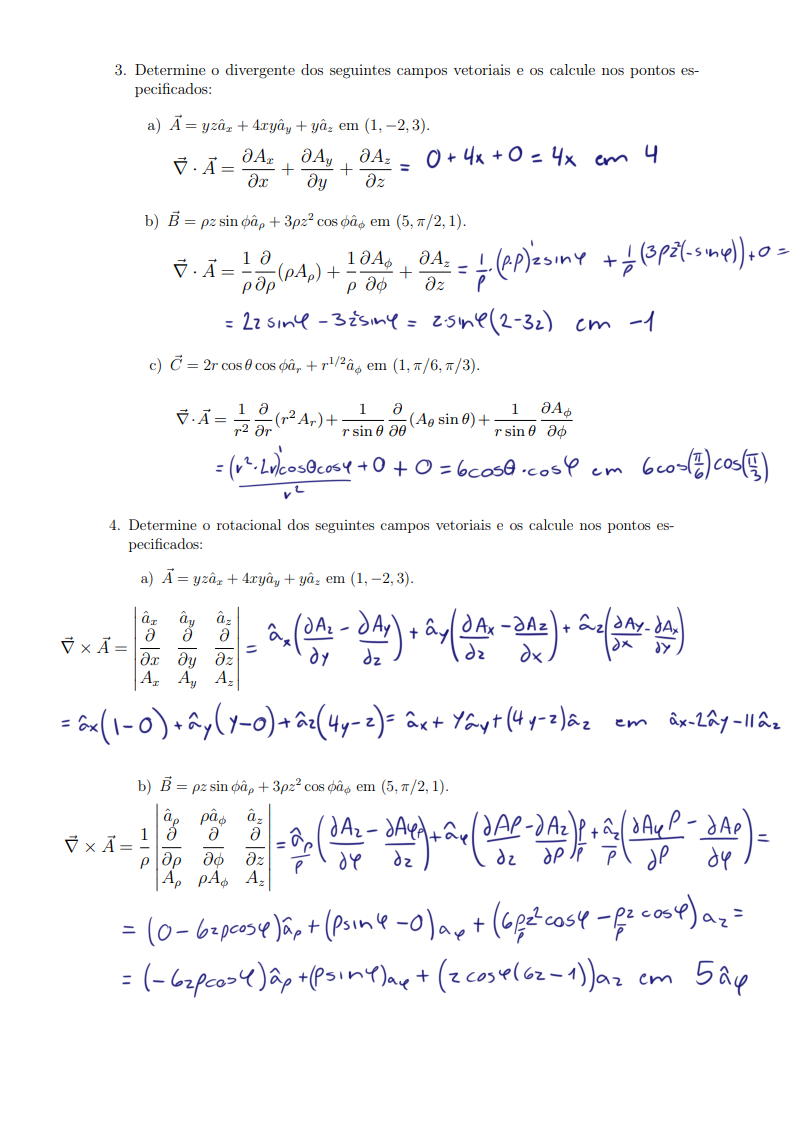 3. Determine o divergente dos seguintes campos vetoriais e os calcule nos pontos es-
pecificados:
a) A⃗ = yzâₓ + 4xyâ_y + yâ_z em (1, −2, 3).
∇⃗ · A⃗ = ∂Aₓ/∂x + ∂A_y/∂y + ∂A_z/∂z = 0 + 4x + 0 = 4x em 4
b) B⃗ = ρz sin ϕâ_ρ + 3ρz² cos ϕâ_ϕ em (5, π/2, 1).
∇⃗ · A⃗ = 1/ρ ∂/∂ρ (ρA_ρ) + 1/ρ ∂A_ϕ/∂ϕ + ∂A_z/∂z = 1/ρ · (ρ.ρ)' z sin φ + 1/ρ (3ρz²(-sin φ)) + 0 =
= 2z sin φ − 3z² sin φ = z·sin φ(2−3z) em −1
c) C⃗ = 2r cos θ cos ϕâ_r + r^{1/2}â_ϕ em (1, π/6, π/3).
∇⃗ · A⃗ = 1/r² ∂/∂r (r²A_r) + 1/(r sin θ) ∂/∂θ (A_θ sin θ) + 1/(r sin θ) ∂A_ϕ/∂ϕ
= (r²·2r)' cosθ cosφ / r² + 0 + 0 = 6cosθ·cosφ em 6cos(π/6) cos(π/3)
4. Determine o rotacional dos seguintes campos vetoriais e os calcule nos pontos es-
pecificados:
a) A⃗ = yzâₓ + 4xyâ_y + yâ_z em (1, −2, 3).
∇⃗ × A⃗ = | âₓ â_y â_z ; ∂/∂x ∂/∂y ∂/∂z ; Aₓ A_y A_z | = âₓ(∂A_z/∂y − ∂A_y/∂z) + â_y(∂Aₓ/∂z − ∂A_z/∂x) + â_z(∂A_y/∂x − ∂Aₓ/∂y)
= âₓ(1−0) + â_y(y−0) + â_z(4y−z) = âₓ + yâ_y + (4y−z)â_z em âₓ−2â_y−11â_z
b) B⃗ = ρz sin ϕâ_ρ + 3ρz² cos ϕâ_ϕ em (5, π/2, 1).
∇⃗ × A⃗ = 1/ρ | â_ρ ρâ_ϕ â_z ; ∂/∂ρ ∂/∂ϕ ∂/∂z ; A_ρ ρA_ϕ A_z | = â_ρ/ρ (∂A_z/∂φ − ∂A_φρ/∂z) + â_φ (∂Aρ/∂z − ∂A_z/∂ρ) ρ/ρ + â_z/ρ (∂A_φρ/∂ρ − ∂Aρ/∂φ) =
= (0 − 6zρcosφ)â_ρ + (ρsinφ − 0)a_φ + (6ρz²/ρ cosφ − ρz/ρ cosφ) a_z =
= (−6zρcosφ)â_ρ + (ρsinφ)a_φ + (z cosφ(6z−1))a_z em 5â_φ